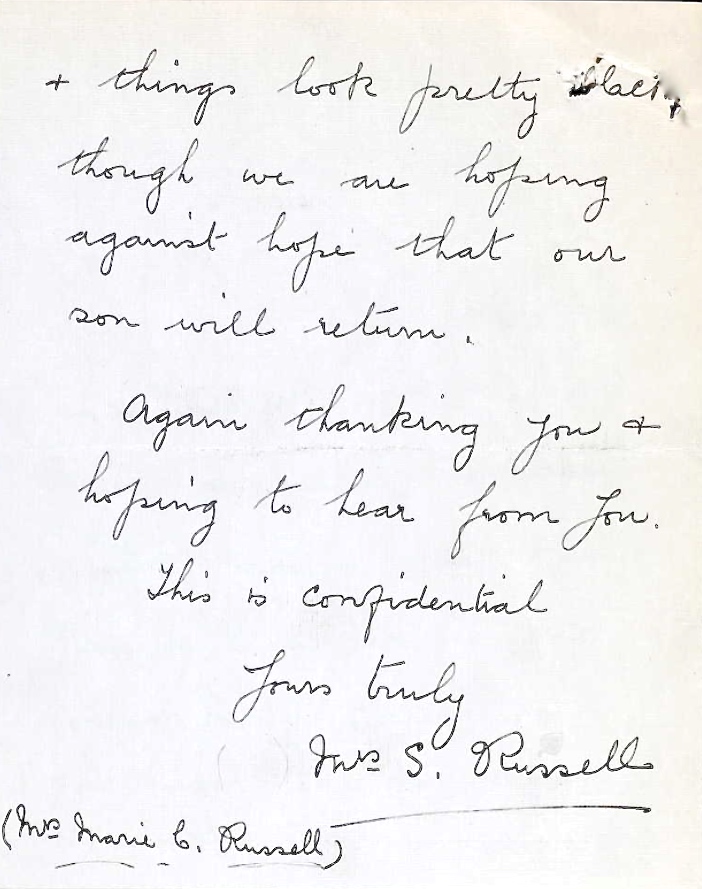 + things look pretty black,
though we are hoping
against hope that our
son will return.
Again thanking you +
hoping to hear from you.
This is confidential
Yours truly
Mrs S. Russell
(Mrs Marie C. Russell)